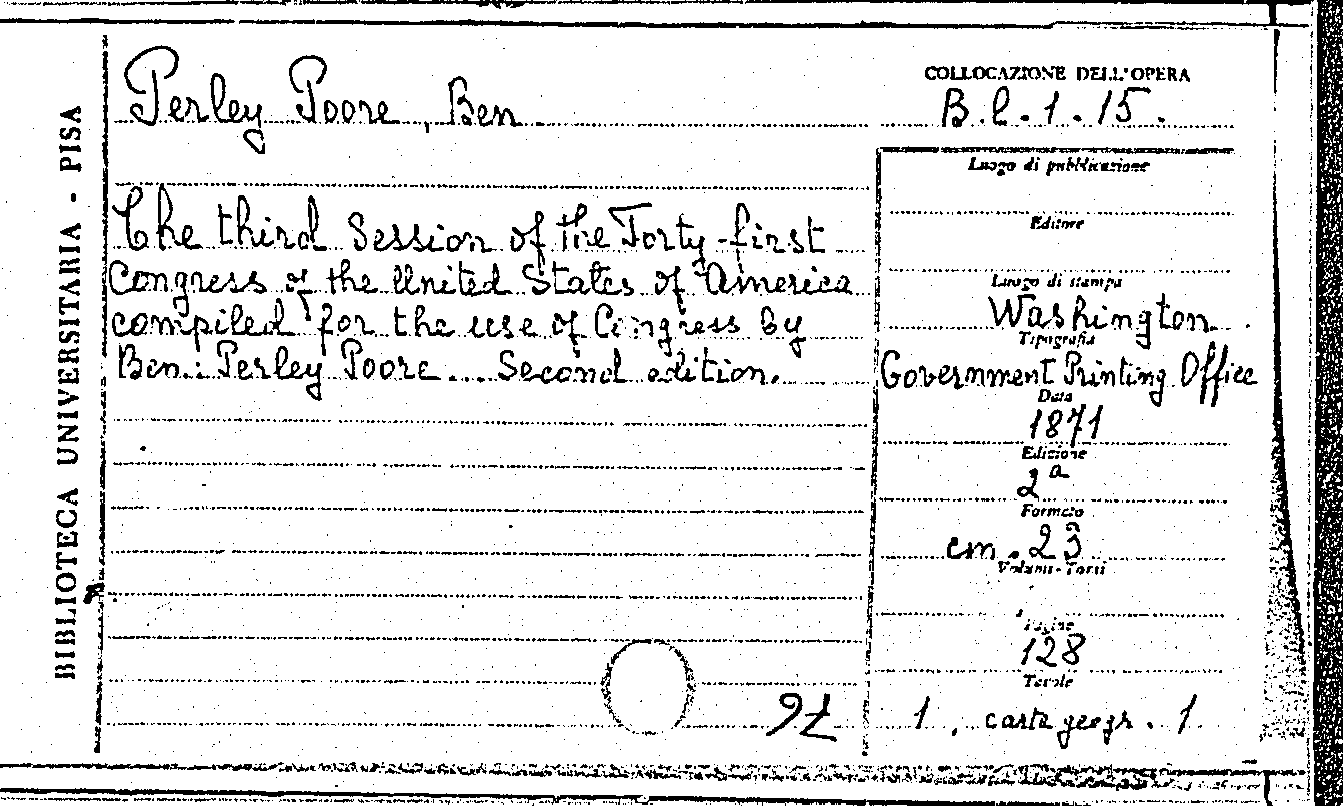 BIBLIOTECA UNIVERSITARIA - PISA
Perley Poore, Ben.
The third Session of the Forty-first
Congress of the United States of America
compiled for the use of Congress by
Ben: Perley Poore.... Second edition.
COLLOCAZIONE DELL'OPERA
B.l.1.15.
Luogo di pubblicazione
Editore
Luogo di stampa
Washington
Tipografia
Government Printing Office
Data
1871
Edizione
2ª
Formato
cm. 23
Volumi-Tomi
Pagine
128
Tavole
1, carta geogr. 1.